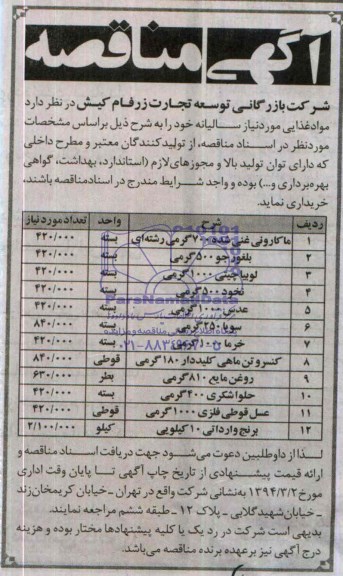 آگهی مناقصه
شرکت بازرگانی توسعه تجارت زرفام کیش در نظر دارد
موادغذایی موردنیاز سالیانه خود را به شرح ذیل براساس مشخصات
موردنظر در اسناد مناقصه، از تولیدکنندگان معتبر و مطرح داخلی
که دارای توان تولید بالا و مجوزهای لازم (استاندارد، بهداشت، گواهی
بهره‌برداری و...) بوده و واجد شرایط مندرج در اسنادمناقصه باشند،
خریداری نماید.
ردیف شرح واحد تعداد مورد نیاز
۱ ماکارونی غنی شده ۷۰۰ گرمی رشته‌ای بسته ۴۲۰/۰۰۰
۲ بلغور جو ۵۰۰ گرمی بسته ۴۲۰/۰۰۰
۳ لوبیا چیتی ۱۰۰۰ گرمی بسته ۴۲۰/۰۰۰
۴ نخود ۵۰۰ گرمی بسته ۴۲۰/۰۰۰
۵ عدس گرمی بسته ۴۲۰/۰۰۰
۶ سویا ۲۵۰ گرمی بسته ۸۴۰/۰۰۰
۷ خرما گرمی بسته ۴۲۰/۰۰۰
۸ کنسرو تن ماهی کلیددار ۱۸۰ گرمی قوطی ۸۴۰/۰۰۰
۹ روغن مایع ۸۱۰ گرمی بطر ۶۳۰/۰۰۰
۱۰ حلواشکری ۴۰۰ گرمی بسته ۴۲۰/۰۰۰
۱۱ عسل قوطی فلزی ۱۰۰۰ گرمی قوطی ۴۲۰/۰۰۰
۱۲ برنج وارداتی ۱۰ کیلویی کیلو ۲/۱۰۰/۰۰۰
ParsNamadData
۰۲۱-۸۸۳۴۹۶۷۰
لذا از داوطلبین دعوت می‌شود جهت دریافت اسناد مناقصه و
ارائه قیمت پیشنهادی از تاریخ چاپ آگهی تا پایان وقت اداری
مورخ ۱۳۹۴/۳/۲ به نشانی شرکت واقع در تهران - خیابان کریمخان زند
- خیابان شهید گلابی - پلاک ۱۲ - طبقه ششم مراجعه نمایند.
بدیهی است شرکت در رد یک یا کلیه پیشنهادها مختار بوده و هزینه
درج آگهی نیز برعهده برنده مناقصه می‌باشد.